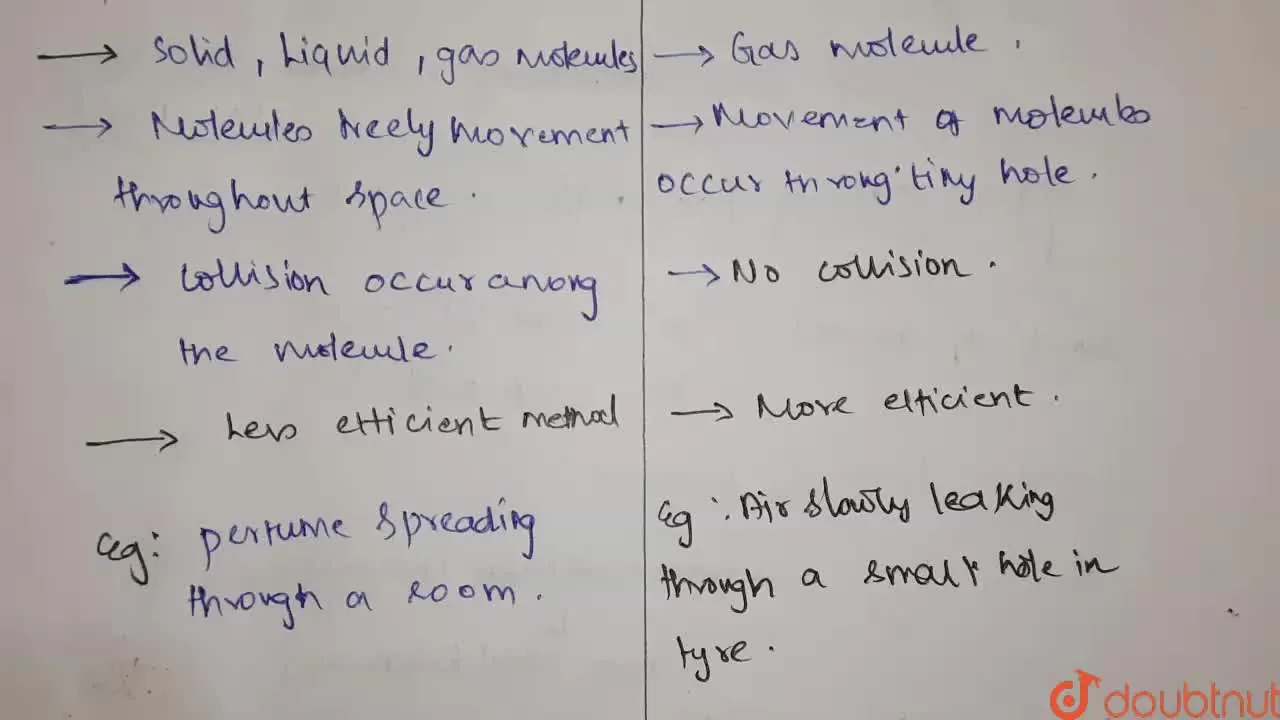 → Solid, Liquid, gas molecules
→ Molecules freely movement
throughout space.
→ Collision occur among
the molecule.
→ Less efficient method
eg: perfume spreading
through a room.
→ Gas molecule.
→ Movement of molecules
occur throug. tiny hole.
→ No collision.
→ More efficient.
eg: Air slowly leaking
through a small hole in
tyre.
doubtnut